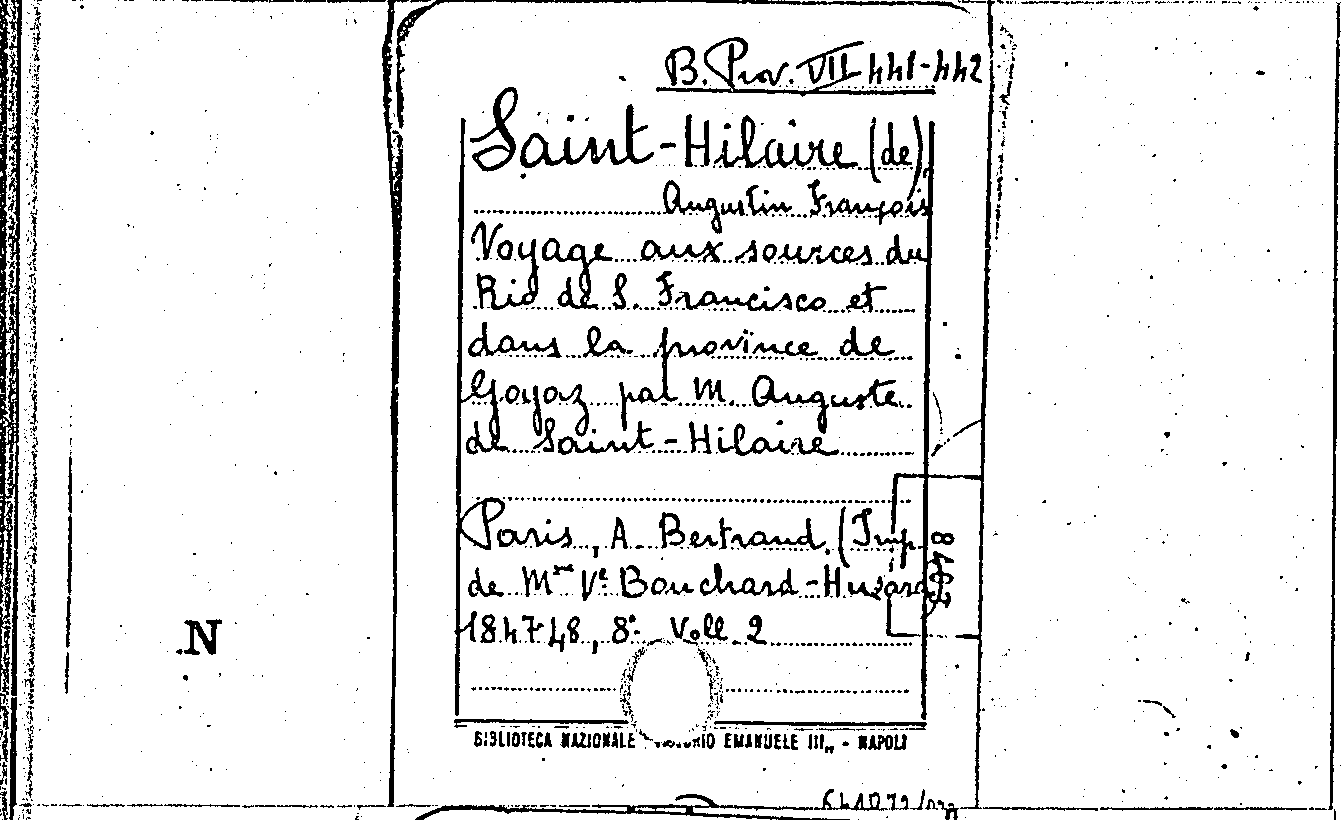 B. Prov. VII 441-442
Saint-Hilaire (de),
Augustin François
Voyage aux sources du
Rio de S. Francisco et
dans la province de
Goyaz par M. Auguste
de Saint-Hilaire
Paris, A. Bertrand, (Imp.
de Mme Ve Bouchard-Huzard)
1847-48, 8° Voll. 2
N
BIBLIOTECA NAZIONALE EMANUELE III„ - NAPOLI